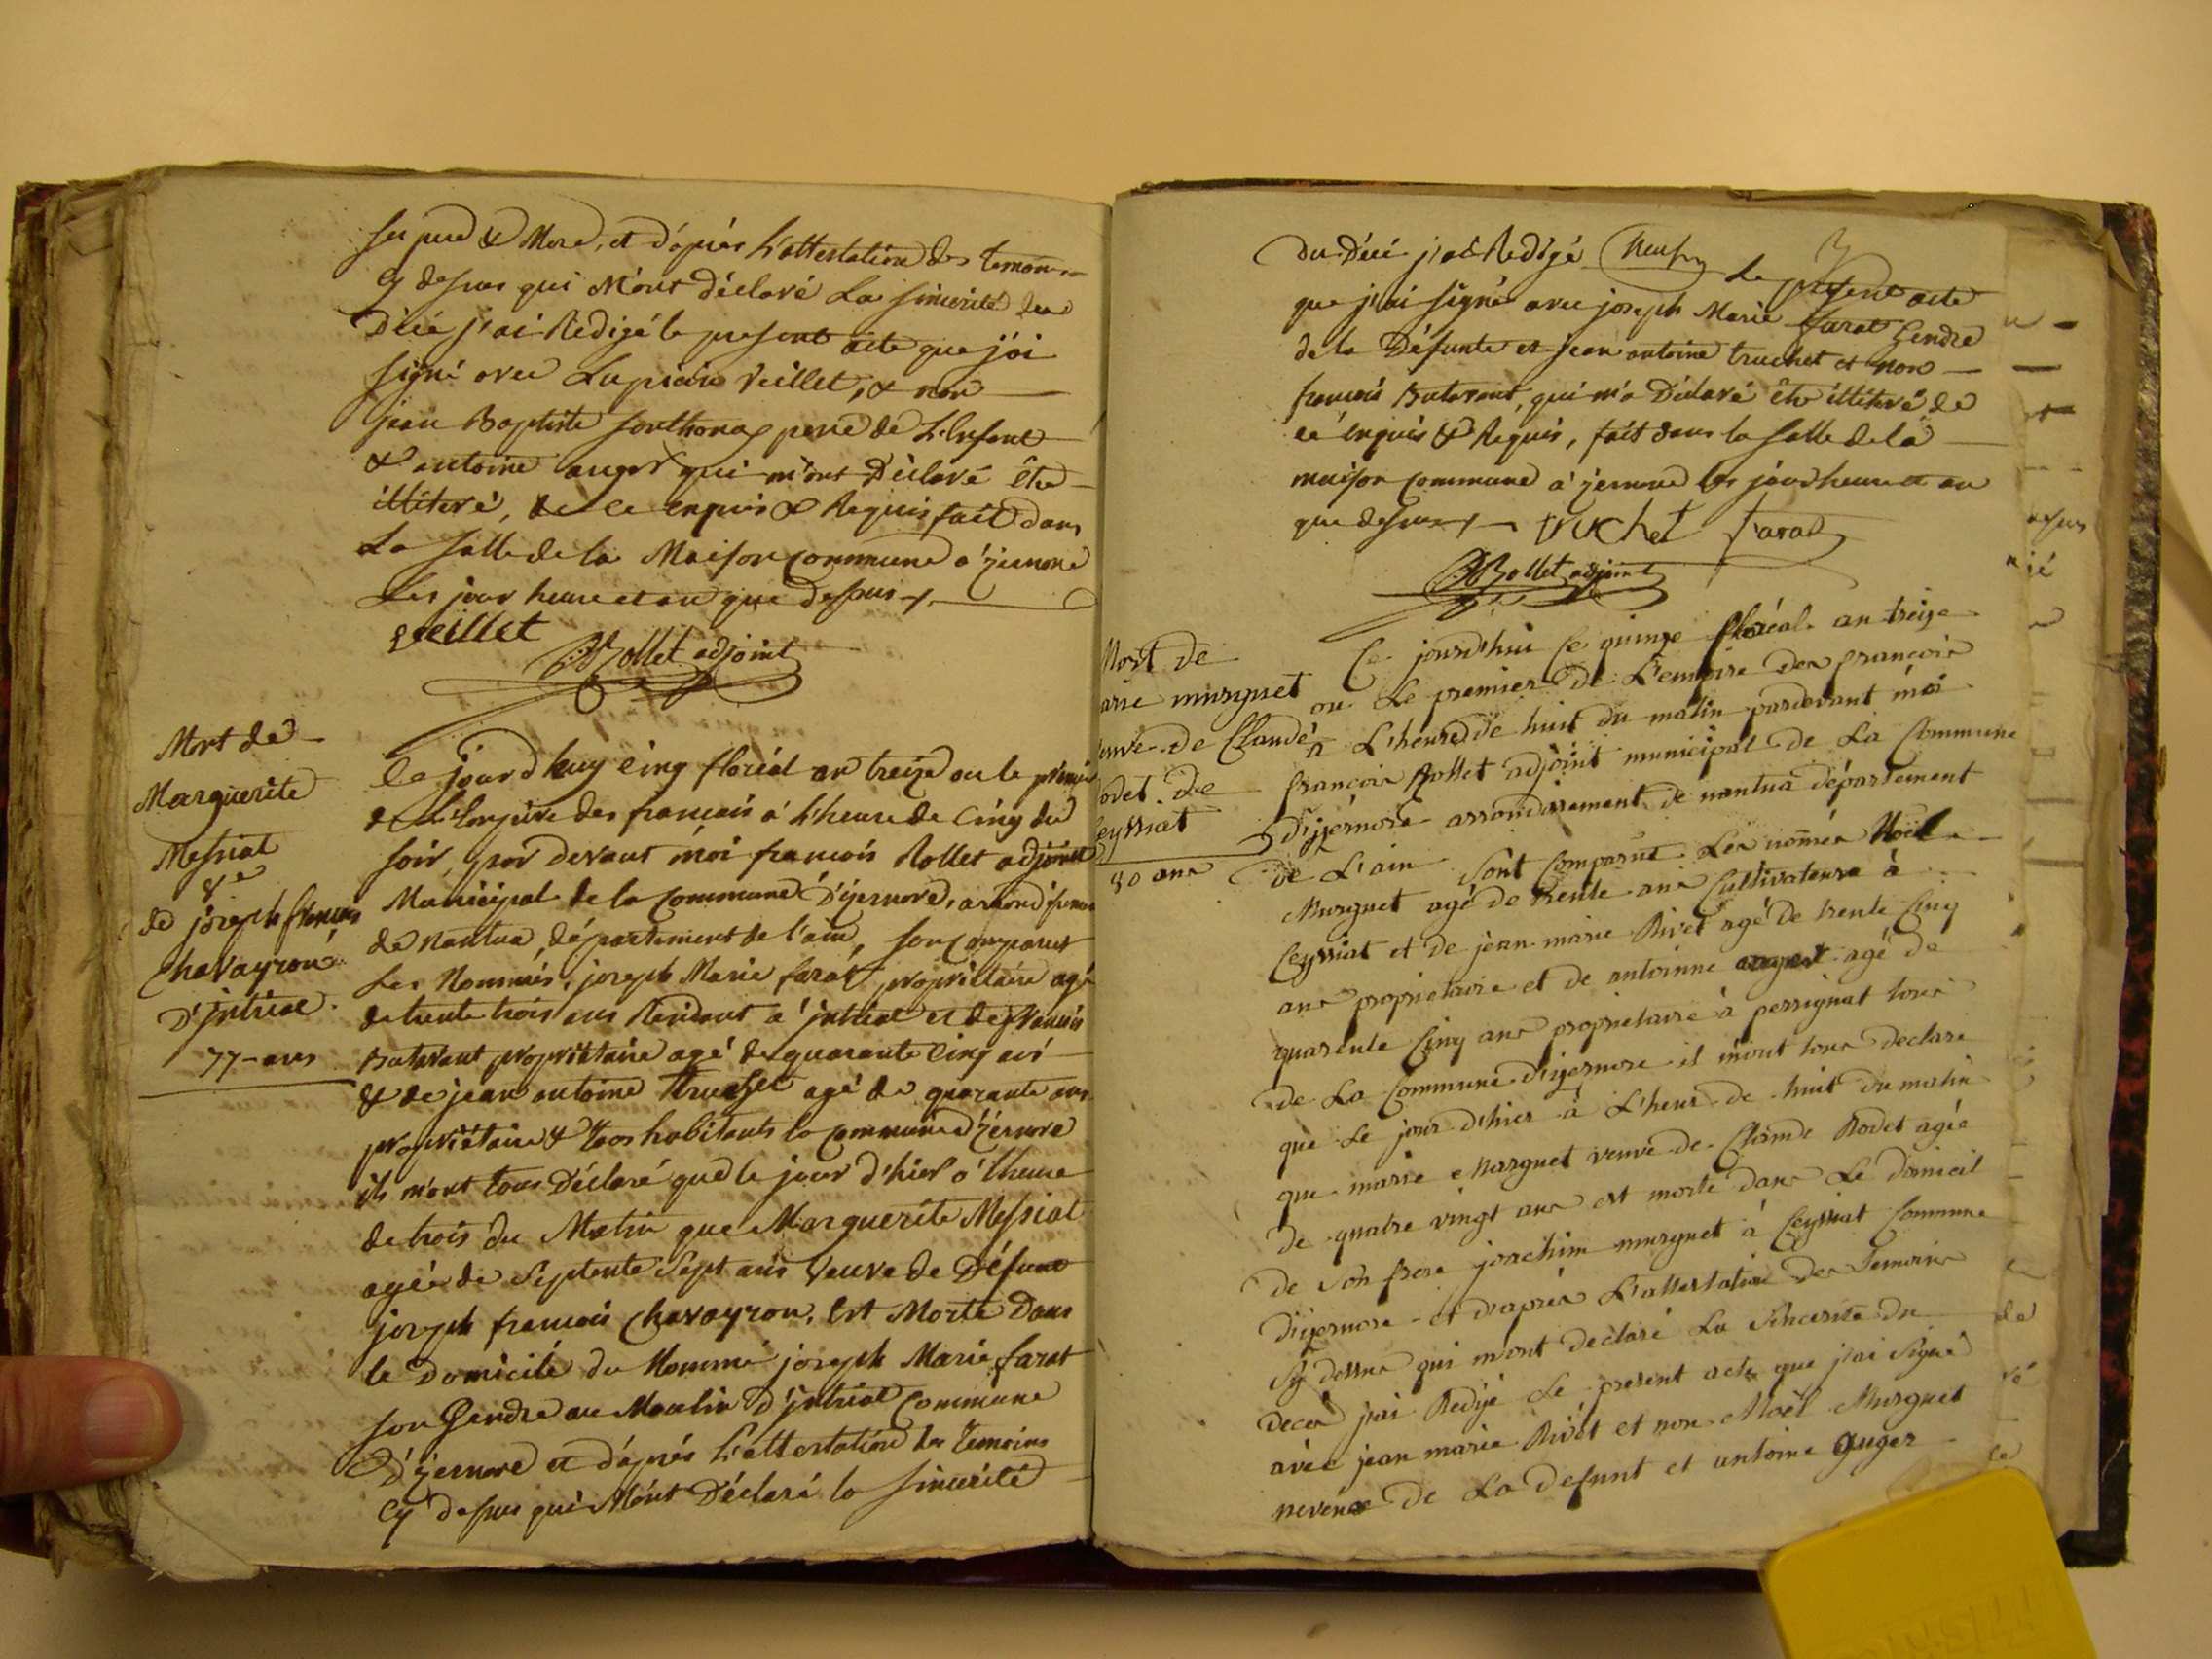 ses pere & Mere, et d'apres L'attestation des temoins
Cy dessus qui M'ont déclaré La sincerité du
Décé j'ai Redigé le present acte que j'ai
signé avec Lupicin Veillet, & non
jean Baptiste Sonthonax pere de L'Enfant
& antoine auger qui m'ont Déclaré être
illiteré, de ce enquis & Requis fait dans
La Salle de la Maison commune a jzernore
Les jour heure et an que dessus
veillet
Rollet adjoint
Mort de
Marguerite
Messiat
Ve
de joseph françois
Chavayron
D'jntriat
77 - ans
Ce jourd'huy cinq floréal an treize ou le premier
de L'Empire des francais à L'heure de Cinq du
soir, par devant moi francois Rollet adjoint
Municipal de la commune D'jzernore, arrondissement
de Nantua, département de l'ain, son comparut
Les Nommés, joseph Marie farat, propriétaire agé
de trente trois ans Residant à jntriat et de francois
Butavant propriétaire agé de quarante Cinq ans
& de jean antoine Truchet agé de quarante ans
propriétaire & Tous habitants la commune d'jzernore
ils m'ont tous Déclaré que le jour d'hier à L'heure
de trois du Matin que Marguerite Messiat
agée de Septente Sept ans Veuve de Défunt
joseph francois Chavayron, Est Morte Dans
le Domicile du Nommé joseph Marie farat
son Gendre au Moulin D'jntriat Commune
D'jzernore et d'après L'attestation des Temoins
Cy dessus qui M'ont Déclaré la sincérité
Du Décé j'ai Redigé
le present acte
que j'ai signé avec joseph Marie farat Gendre
de la Défunte et jean antoine truchet et non
francois Butavant, qui m'a Déclaré être illiteré de
ce enquis & Requis, fait dans la salle de la
maison commune à jzernore les jour heure et an
que dessus truchet farat
Rollet adjoint
Mort de
arie murguet
euve de Claude
odet de
eyssiat
80 ans
Ce jourd'hui Ce quinze floréal an treize
ou Le premier De L'empire Des françois
à L'heure de huit du matin pardevant moi
françois Rollet adjoint municipal de La Commune
D'izernore arrondissement de nantua département
De L'ain Sont Comparut Les només Noël
Murguet agé de trente ans Cultivateurs à
Ceyssiat et de jean marie Rivet agé de trente Cinq
ans propriétaire et de antoinne auger agé de
quarente Cinq ans proprietaire à perrignat tous
de La Commune d'izernore il m'ont tous declare
que Le jour d'hier à L'heur de huit du matin
que marie Murguet veuve de Claude Rodet agée
De quatre vingt ans est morte dans Le Domicil
De Son frere joachim murguet à Ceyssiat Commune
D'izernore et d'aprés L'attestation Des Temoins
Sy dessus qui m'ont declaré La Sincerité du
decés j'ai Redijé Le present acte que j'ai Signé
avec jean marie Rivet et non Noël Murguet
neveux De La Defunt et antoine auger